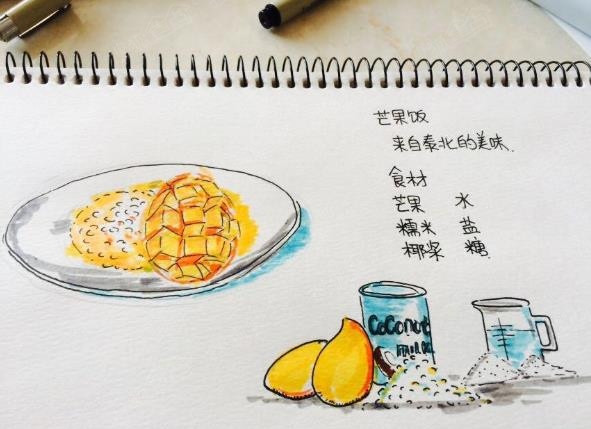 芒果饭
来自泰北的美味.
食材
芒果 水
糯米 盐
椰浆 糖
CoConut
MILK